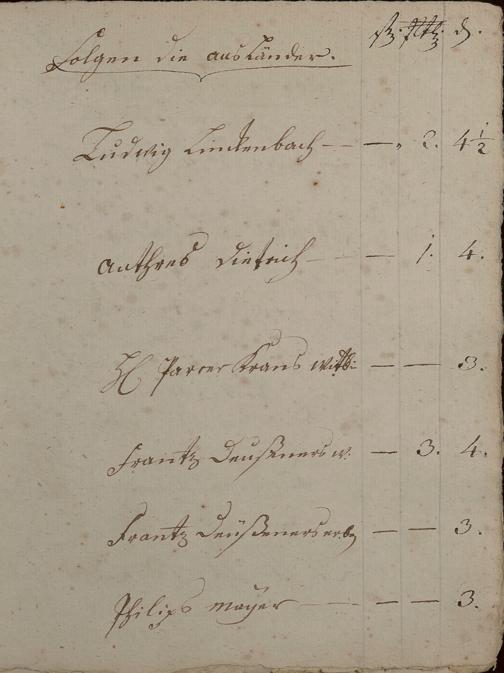 Folgen die ausländer. d.
Ludwig Lindenbach — — 2. 4 1/2
Anthres Dietrich — — 1. 4.
H Parrer Krans witti: — — 3.
Frantz Deußners w. — 3. 4.
Frantz Deüßeners erb — — 3.
Philips Mayer — — — 3.